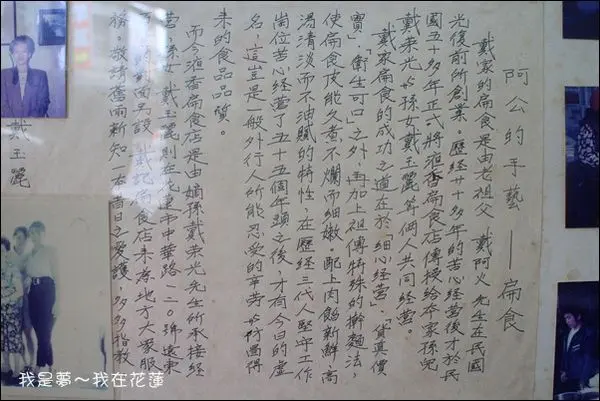 阿公的手藝——扁食
戴家的扁食是由老祖父 戴阿火 先生在民國
光復前所創業。歷經廿十多年的苦心經營後才於民
國五十多年正式將滙香扁食店傳授給本家孫兒
戴來光與孫女戴玉麗等倆人共同經營。
戴家扁食的成功之道在於「細心經營」、「貨真價
實」、「衛生可口」之外,再加上祖傳特殊的擀麵法,
使扁食皮能久煮不爛而細嫩。配上肉餡新鮮、高
湯清淡而不油膩的特性,在歷經三代人堅守工作
崗位苦心經營了五十五個年頭之後,才有今日的虛
名,這豈是一般外行人所能忍受的辛勞與付出得
來的食品品質。
而今滙香扁食店是由嫡孫戴來光先生所承接經
營,孫女 戴玉麗則在花蓮市中華路一二0號遠東
前面另設 戴記扁食店來為地方大眾服
務。敬請舊雨新知一本昔日之愛護,多多指教
戴玉麗
我是夢~我在花蓮